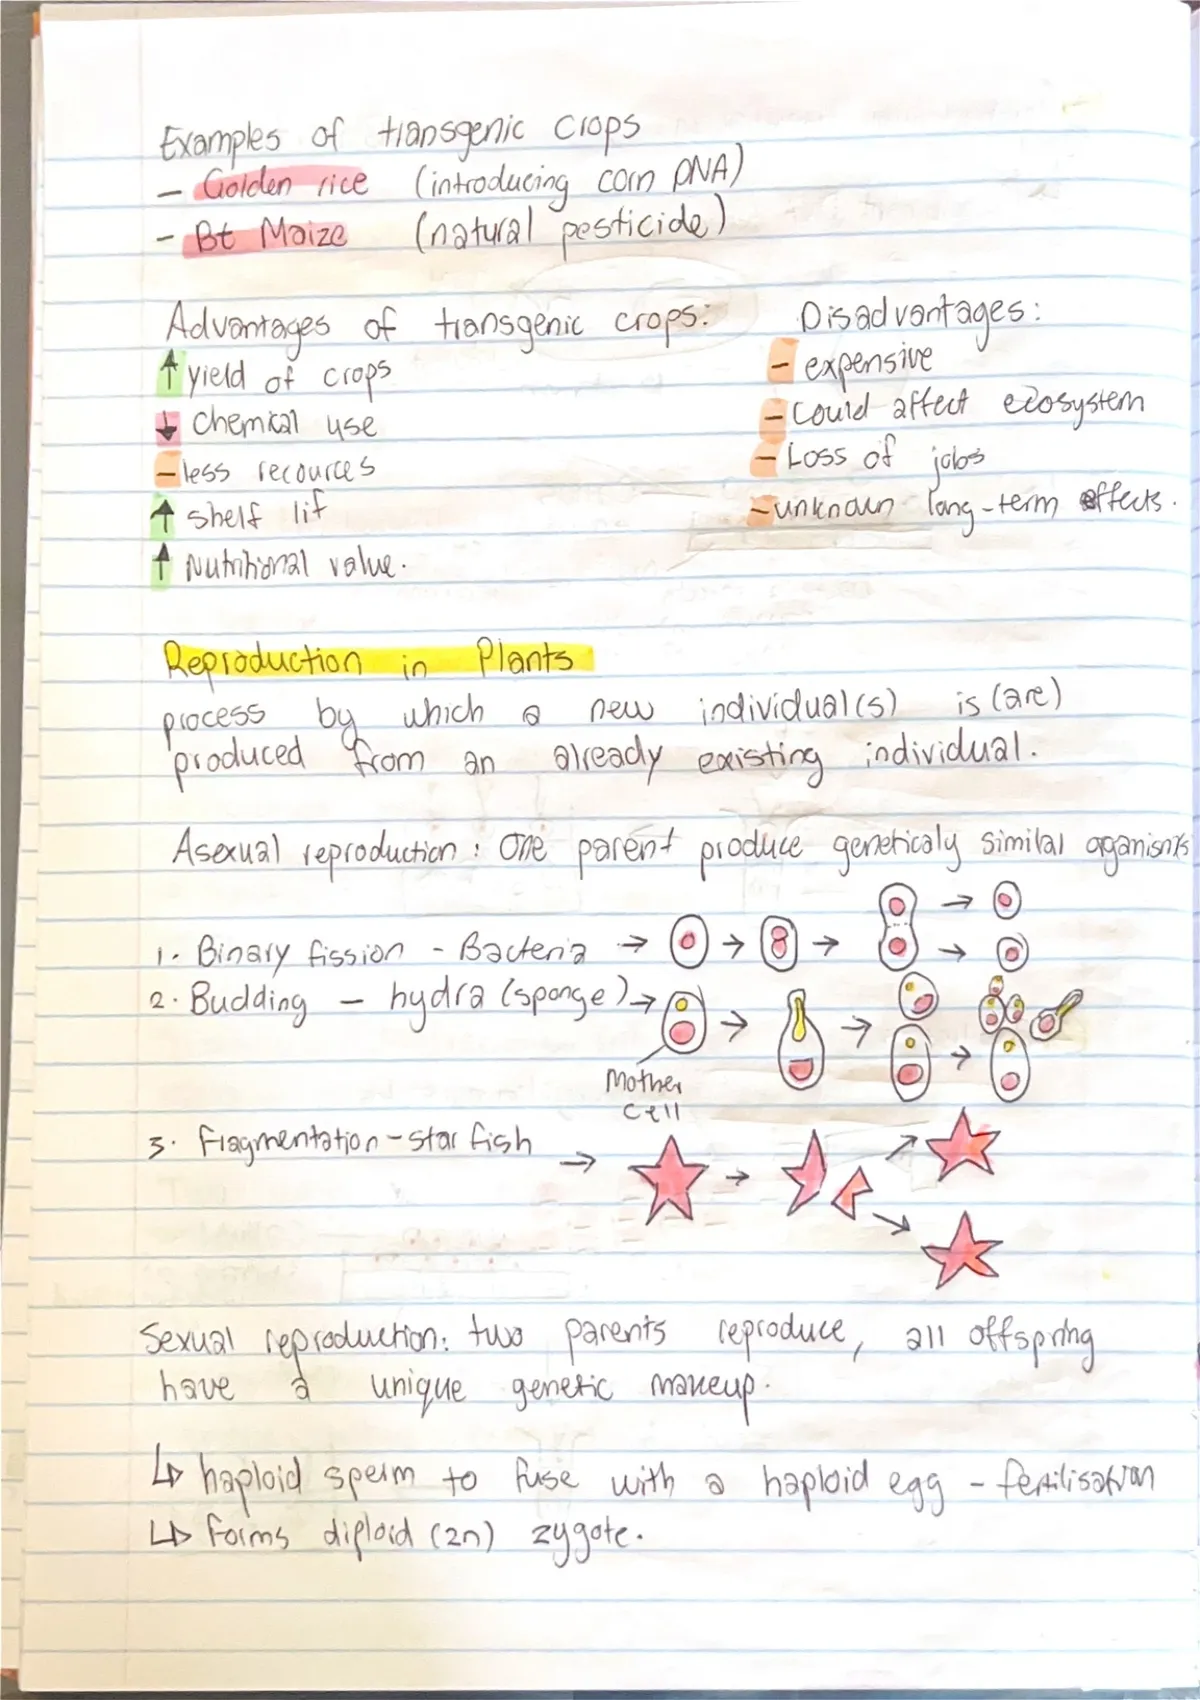 Examples of transgenic crops
- Golden rice (introducing corn DNA)
- Bt Maize (natural pesticide)
Advantages of transgenic crops:
↑ yield of crops
↓ chemical use
- less recources
↑ shelf lif
↑ Nutritional value.
Disadvantages:
- expensive
- Could affect ecosystem
- Loss of jobs
- unknown long-term effects.
Reproduction in Plants
process by which a new individual(s) is (are)
produced from an already existing individual.
Asexual reproduction: One parent produce geneticaly similar organisms
1. Binary fission - Bacteria →
2. Budding - hydra (sponge) →
Mother
Cell
3. Fragmentation - star fish →
Sexual reproduction: two parents reproduce, all offspring
have a unique genetic makeup.
↳ haploid sperm to fuse with a haploid egg - fertilisation
↳ Forms diploid (2n) zygote.